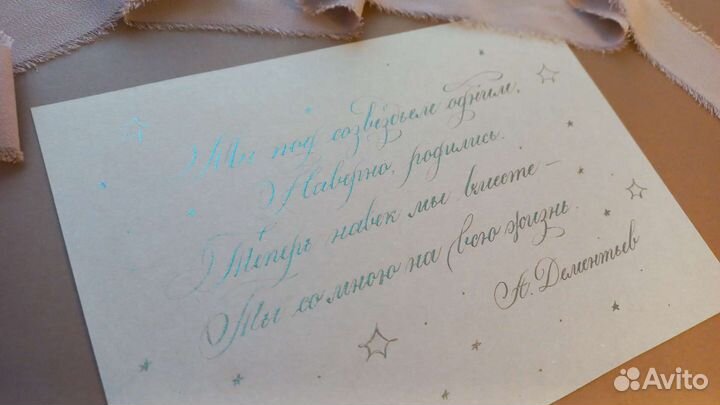 Мы под созвездьем одним,
Наверно, родились.
Теперь навек мы вместе –
Ты со мною на всю жизнь.
А. Дементьев
Avito